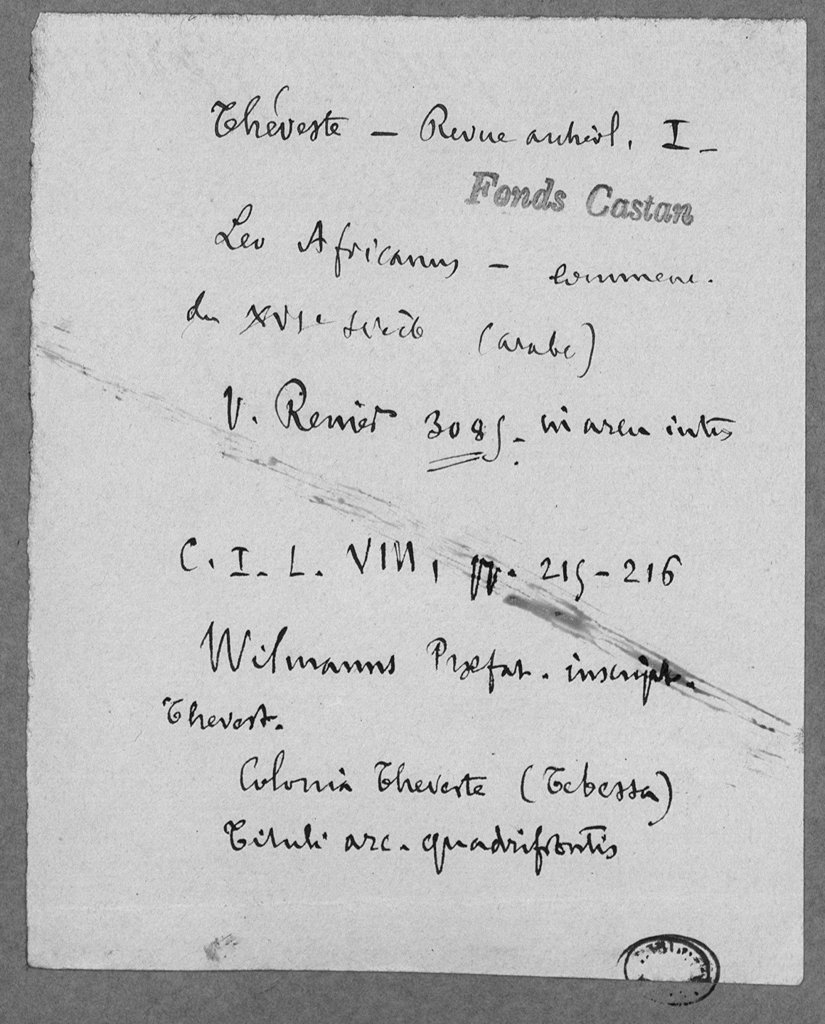 Théveste – Revue archéol. I –
Fonds Castan
Leo Africanus – commenc.
du XVIe siècle (arabe)
V. Renier 3085 – in arcu intus
C. I. L. VIII, pp. 215–216
Wilmanns Præfat. inscript.
Thevest.
Colonia Theveste (Tebessa)
Tituli arc. quadrifrontis